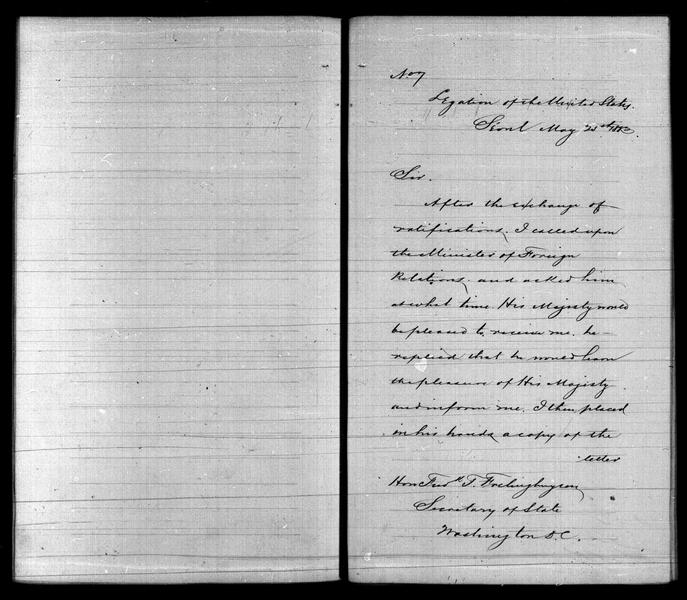 No 7
Legation of the United States.
Seoul May 21st 1883.
Sir.
After the exchange of
ratifications, I called upon
the Minister of Foreign
Relations, and asked him
at what time His Majesty would
be pleased to receive me, he
replied that he would learn
the pleasure of His Majesty
and inform me. I then placed
in his hands a copy of the
letter
Hon Fredk T. Frelinghuysen
Secretary of State
Washington D.C.